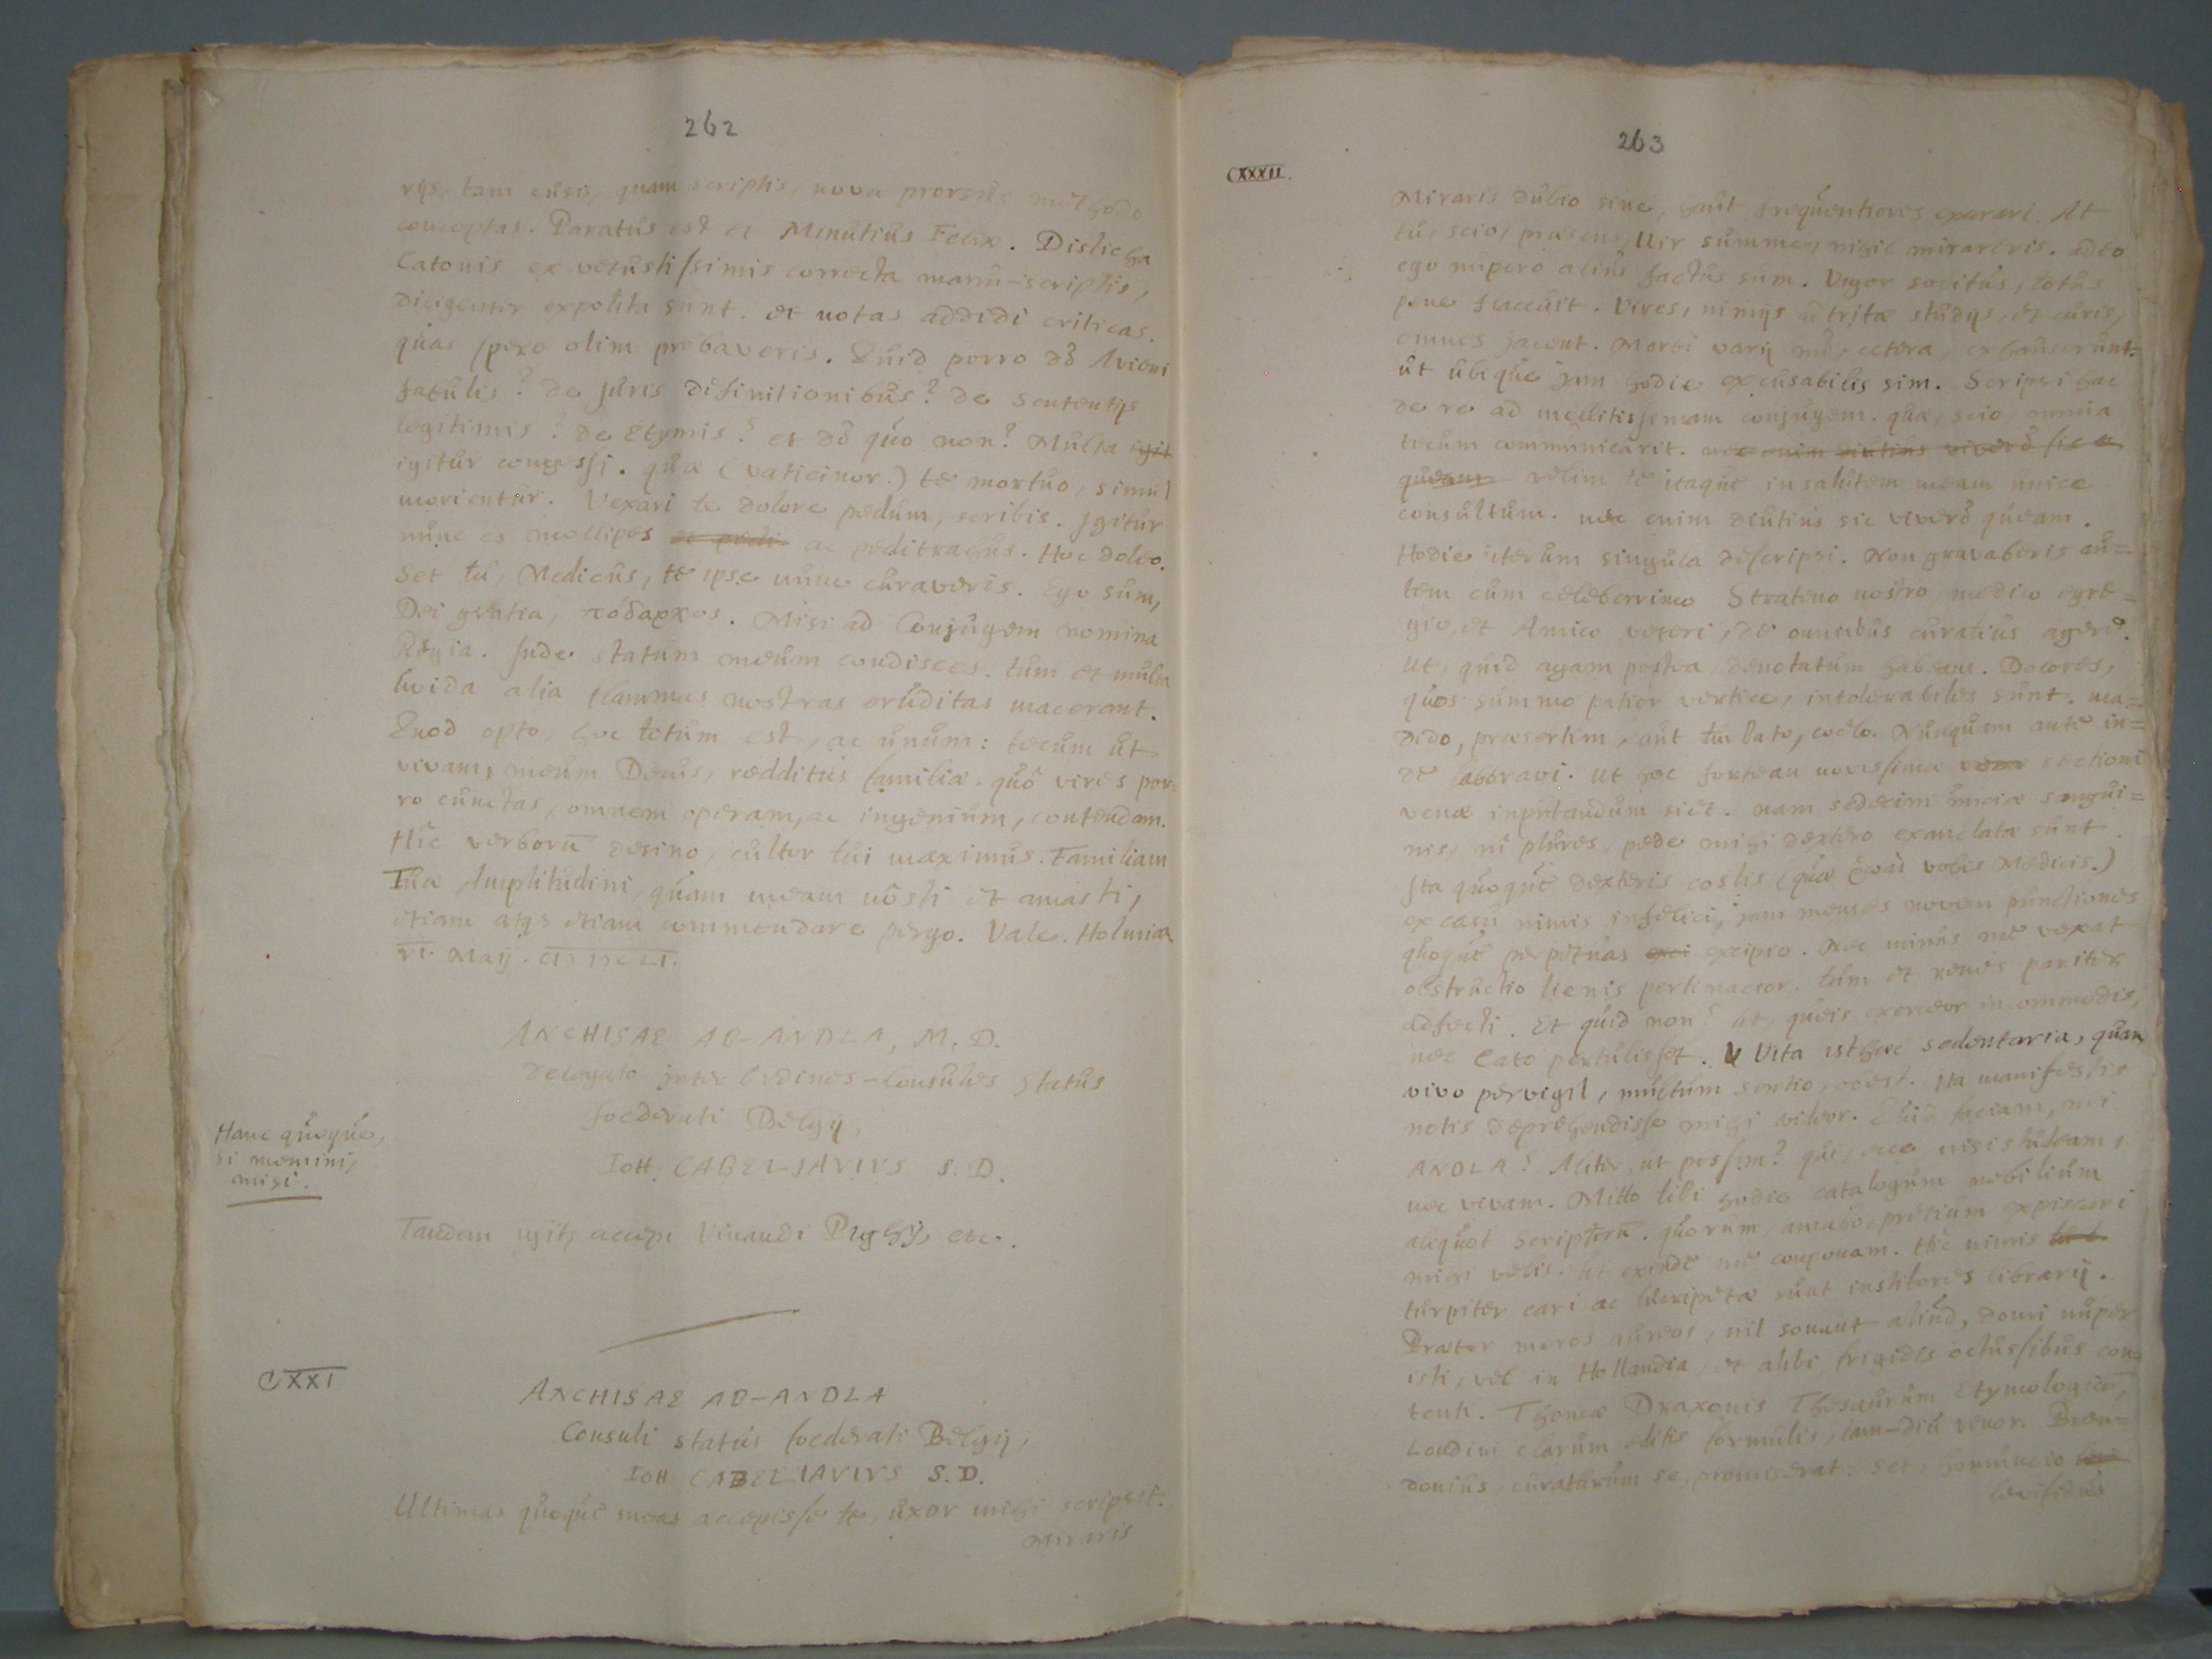 262
rijs, tam cusis, quam scriptis, nova prorsus methodo
conceptas. Paratus est et Minutius Felix. Disticha
Catonis ex vetustissimis correcta manu-scriptis,
diligenter expolita sunt. et notas addidi criticas.
quas spero olim probaveris. Quid porro de Avieni
fabulis? de juris definitionibus? de sententijs
legitimis? de Etymis? et de quo non? Multa igit
igitur congessi. quæ (vaticinor.) te mortuo, simul
morientur. Vexari te dolore pedum, scribis. Igitur
nunc es mollipes et pedi ac peditractus. Hoc doleo.
Set tu, Medicus, te ipse nunc curaveris. Ego sum,
Dei gratia, πόδαρκος. Misi ad Conjugem nomina
Regia. Inde statum meum condisces. tum et multa
alia flammas nostras eruditas macerant.
Quod opto, hoc totum est, ac unum: tecum ut
vivam, meum Decus, redditus familiæ. quo vires por-
ro cunctas, omnem operam, ac ingenium, contendam.
Hic verborũ desino, cultor tui maximus. Familiam
Tuæ Amplitudini, quam meam nosti et amasti,
etiam atq; etiam commendare pergo. Vale. Holmiæ
VI. Maij.
ANCHISAE AB-ANDLA, M. D.
Delegato inter Ordines-Consules status
foederati Belgij,
IOH. CABELIAVIVS S. D.
Hanc quoque,
si memini,
misi.
Tandem accepi Vinandi Pighij, etc.
CXXI
ANCHISAE AB-ANDLA
Consuli status foederati Belgij,
IOH CABELIAVIVS S. D.
Ultimas quoque meas accepisse te, uxor mihi scripsit.
Miraris
263
CXXXII.
Miraris dubio sine, haut frequentiores exarari. At
tu, scio, præsens, Vir summe, nihil mirareris. adeo
ego nupero alius factus sum. Vigor solitus, totus
pene flaccuit. Vires, nimijs attritæ studijs et curis,
omnes jacent. Morbi varij me, cetera, exhauserunt.
ut ubique jam hodie excusabilis sim. Scripsi hac
de re ad mellitissimam conjugem. quæ, scio, omnia
tecum communicarit. nec enim diutius vivere sic
queam velim te itaque in salutem meam unice
consultum. nec enim diutius sic vivere queam.
Hodie iterum singula descripsi. Non gravaberis au=
tem cum celeberrimo Strateno nostro, medico egre=
gio, et Amico veteri, de omnibus curatius agere.
Ut, quid agam postea, denotatum habeam. Dolores,
quos summo patior vertice, intolerabiles sunt. ma=
dido, præsertim, aut turbato, coelo. Nunquam ante in=
de laboravi. Ut hoc fortean novissimæ venæ sectioni
venæ inputandum siet. nam sedecim unciæ sangui=
nis, ni plures, pede mihi dextero exanclatæ sunt.
Ita quoque dexteris costis (quæ vobis Medicis.)
ex casu nimis infelici, jam menses novem punctiones
quoque perpetuas exci excipio. Nec minus me vexat
obstructio lienis pertinacior. tum et renes pariter
adfecti. Et quid non? at, queis exerceor incommodis,
nec Cato pertulisset. Vita isthæc sedentaria, quam
vivo pervigil, multum sentio, obest. Ita manifestis
notis deprehendisse mihi videor. Quid faciam, mi
ANDLA? Aliter, ut possim? qui, nisi studeam,
nec vivam. Mitto tibi hodie catalogum nobilium
aliquot scriptorũ. quorum, amabo, pretium expiscari
mihi velis. ut exinde me conponam. Hic nimis
turpiter cari ac lucripetæ sunt institores librarij.
Præter meros aureos, nil sonant aliud, domi nuper
isti, vel in Hollandia, et alibi, frigidis octussibus con-
tenti. Thomæ Draxonis Thesaurum Etymologicũ,
Londini clarum editis formulis, tam-diu venor.
donius, curaturum se, promiserat. Set, homuncio
levifidus